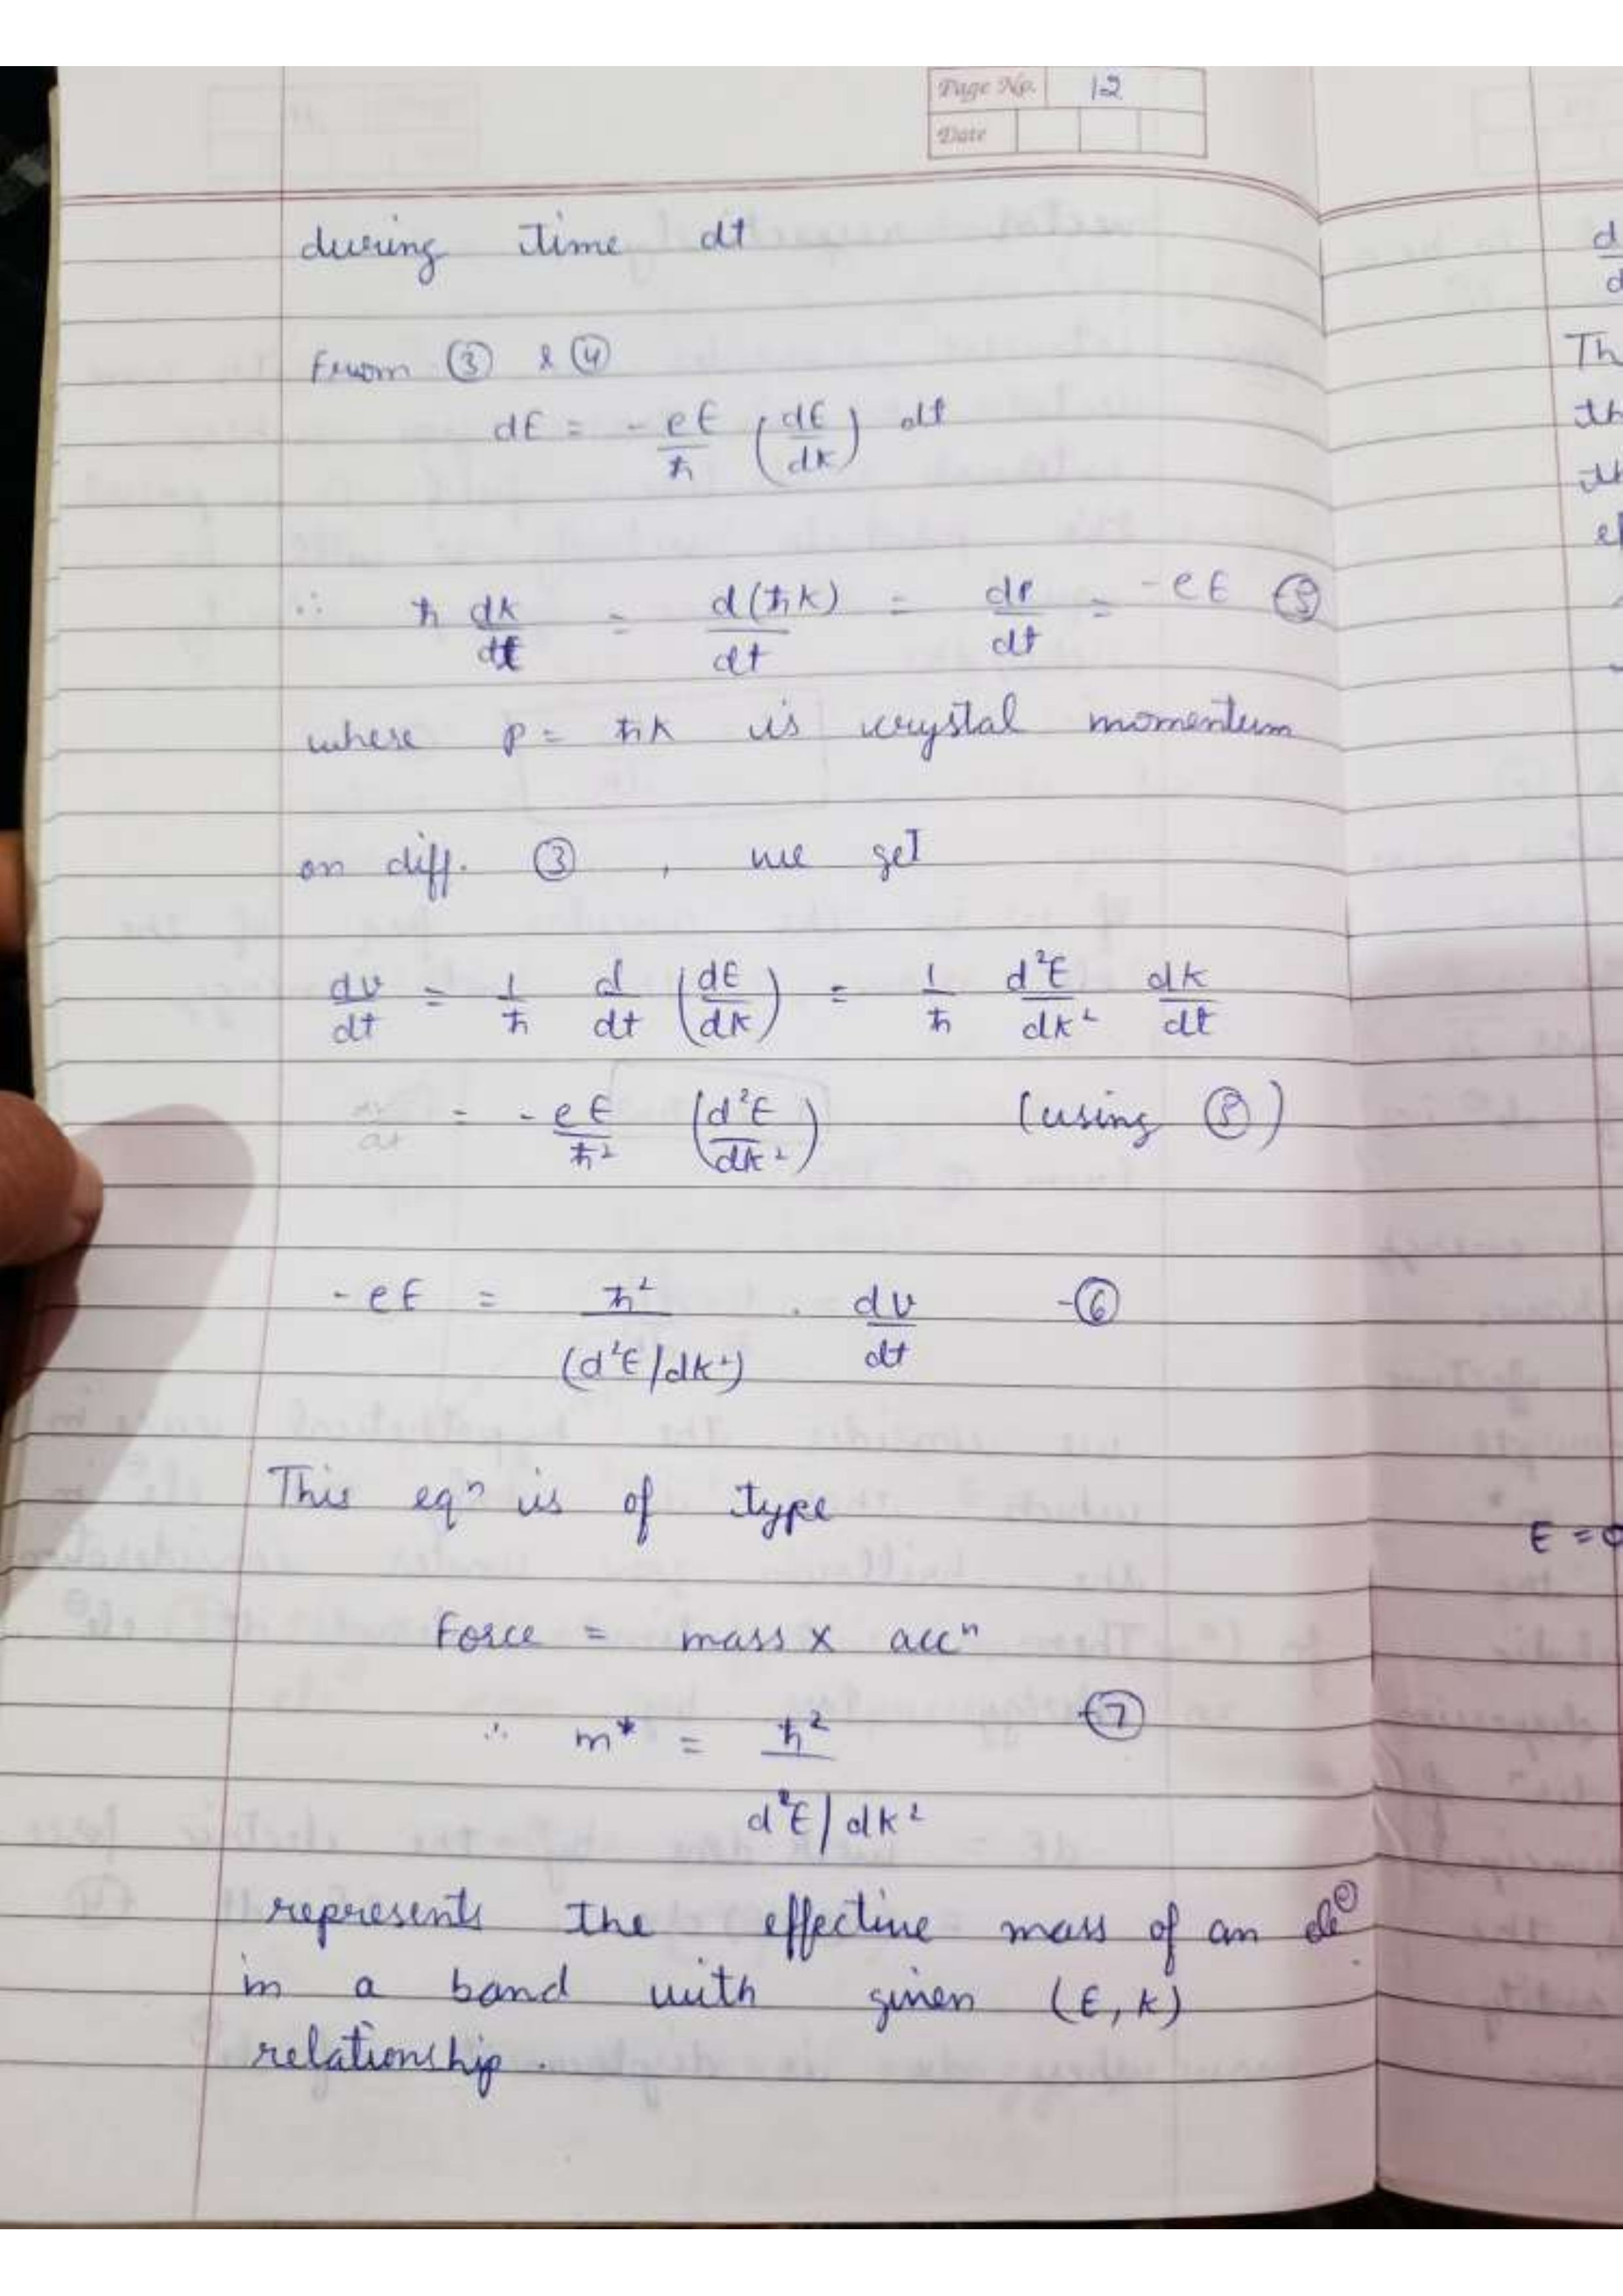 Page No. 12
Date
during time dt
From ③ & ④
dE = - eE/ħ (dE/dk) dt
∴ ħ dk/dt = d(ħk)/dt = dp/dt = -eE ⑤
where p = ħk is crystal momentum
on diff. ③ , we get
dv/dt = 1/ħ d/dt (dE/dk) = 1/ħ d²E/dk² dk/dt
= - eE/ħ² (d²E/dk²) (using ⑤)
- eE = ħ²/(d²E/dk²) . dv/dt -⑥
This eqⁿ is of type
Force = mass x accⁿ
∴ m* = ħ²/d²E/dk² -⑦
represents the effective mass of an
in a band with given (E, k)
relationship.
d
d
Th
th
th
ef
E = 0